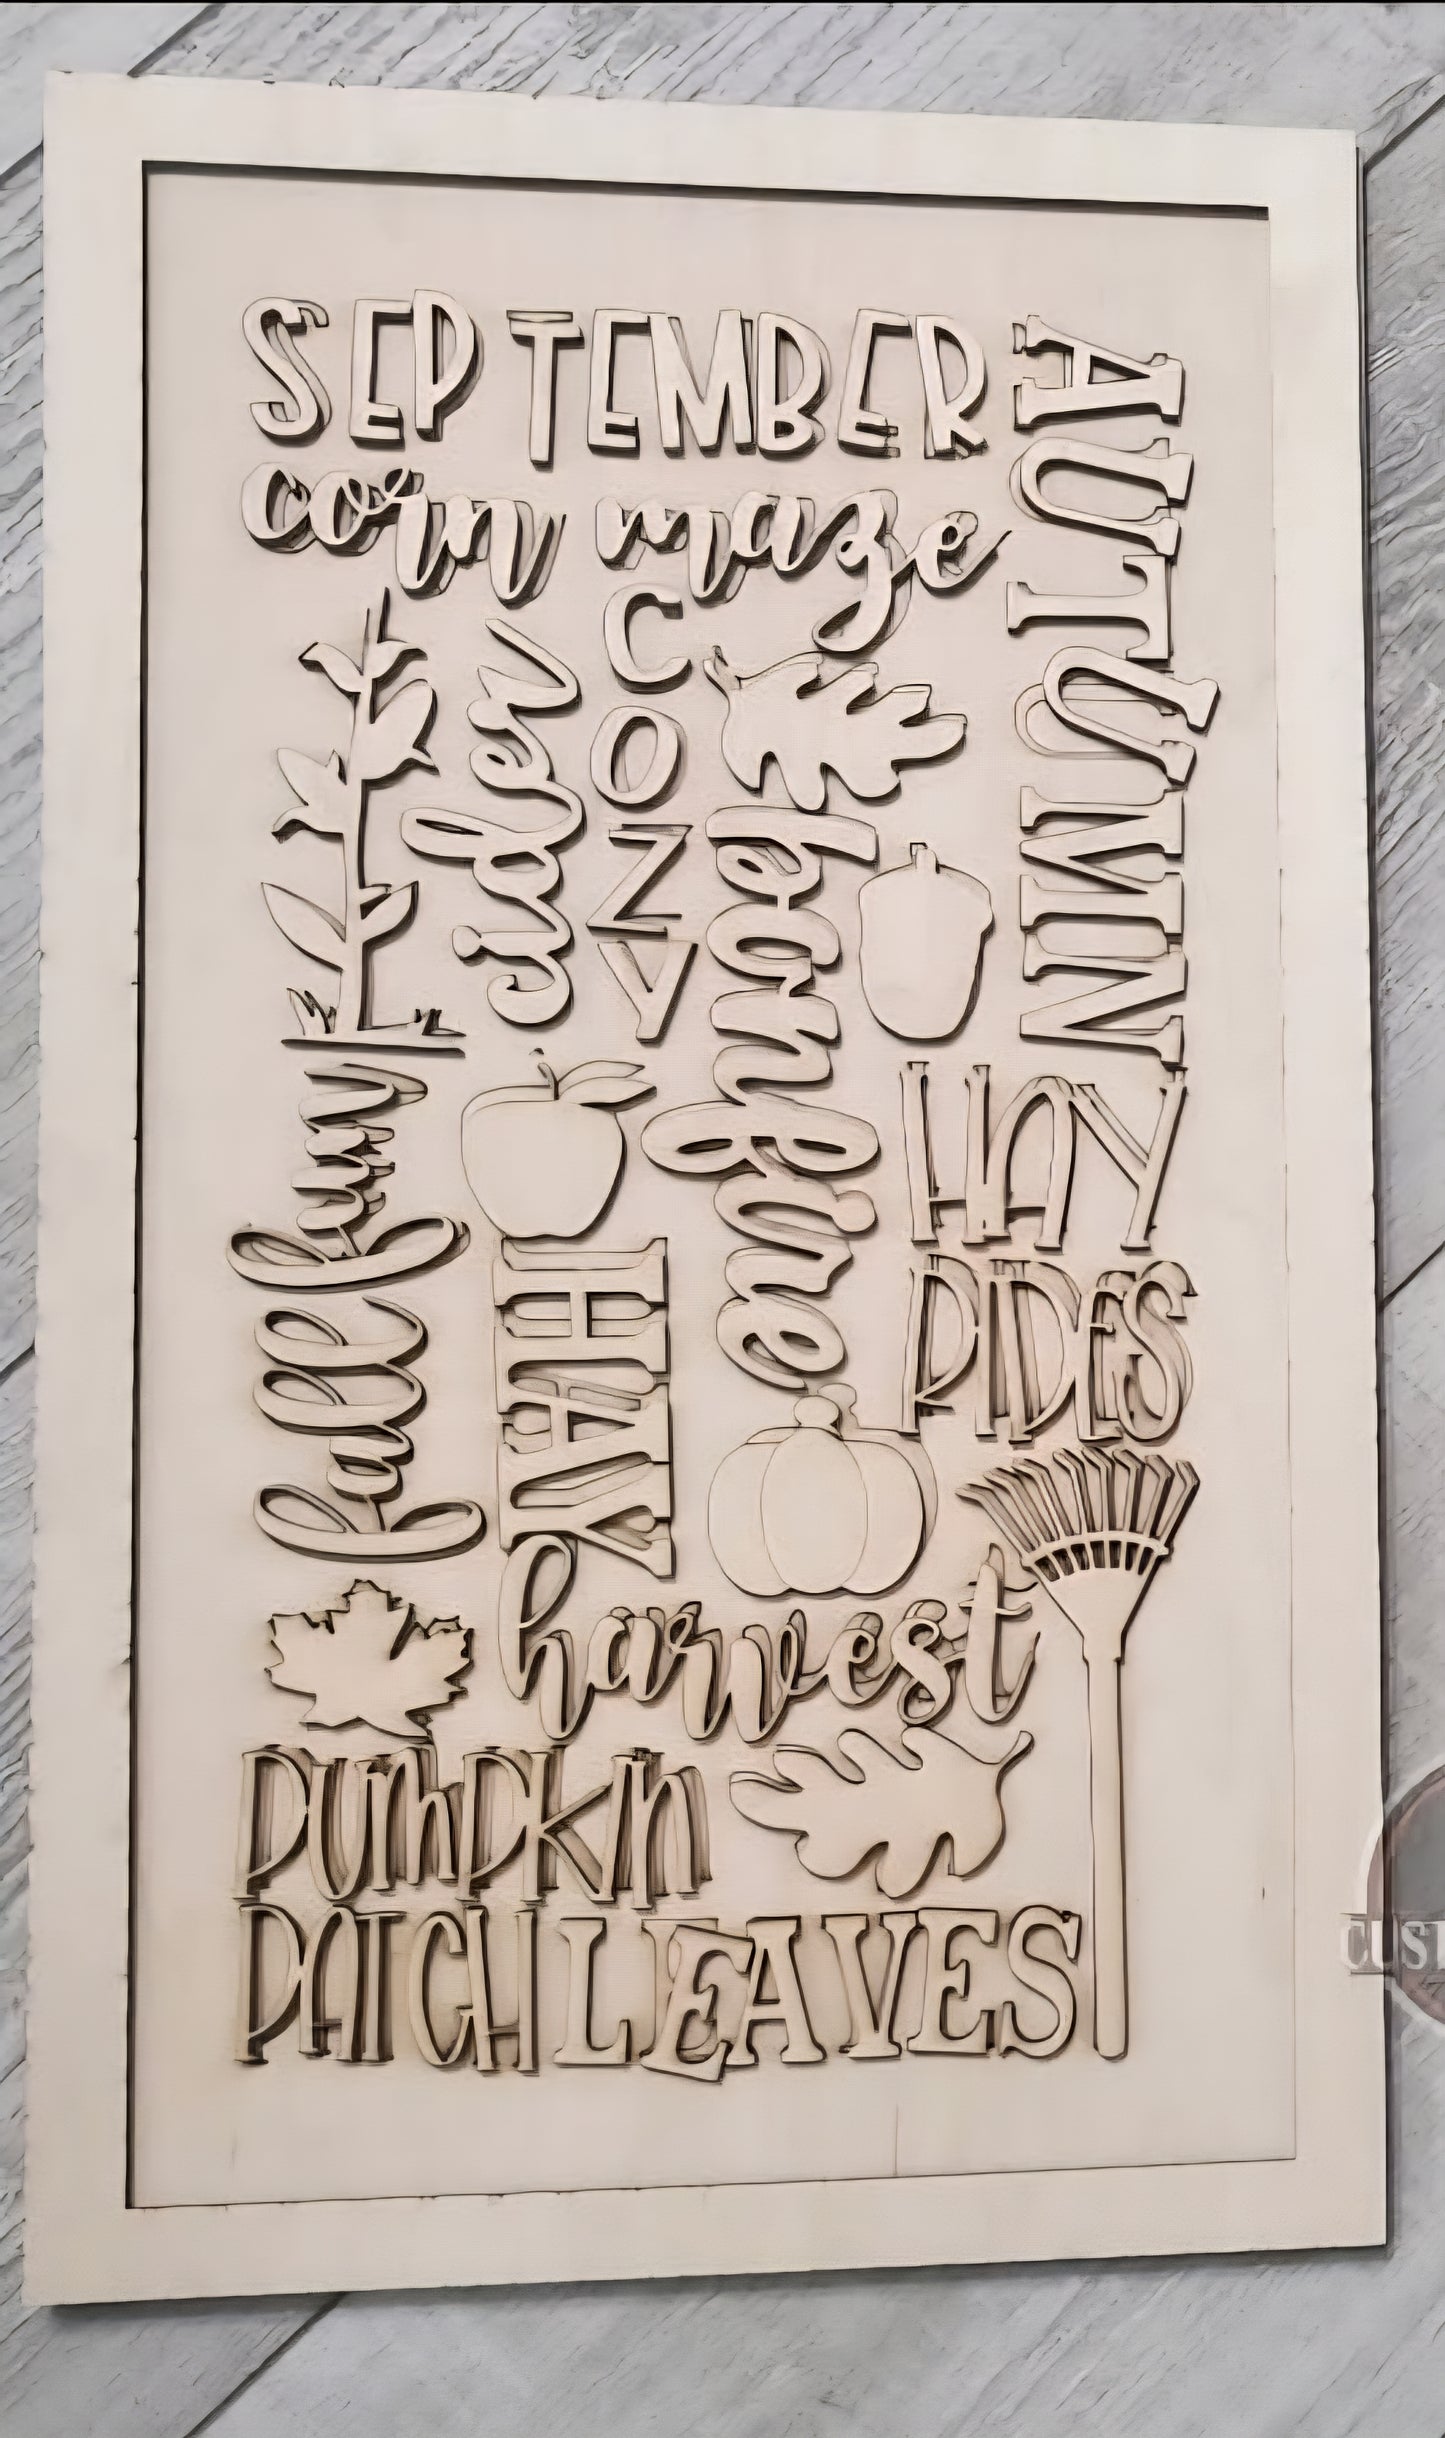 SEPTEMBER
corn maze
AUTUMN
cider
COZY
bonfire
HAY
RIDES
fall fun
HAY
harvest
PUMPKIN
PATCH
LEAVES